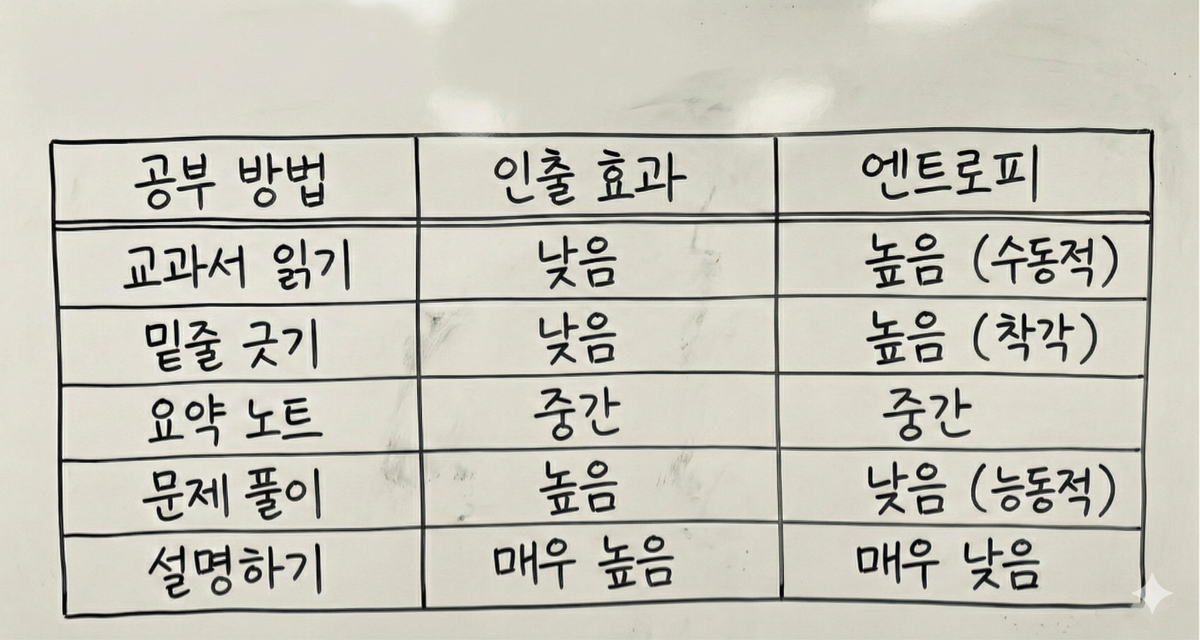 공부 방법 인출 효과 엔트로피
교과서 읽기 낮음 높음 (수동적)
밑줄 긋기 낮음 높음 (착각)
요약 노트 중간 중간
문제 풀이 높음 낮음 (능동적)
설명하기 매우 높음 매우 낮음